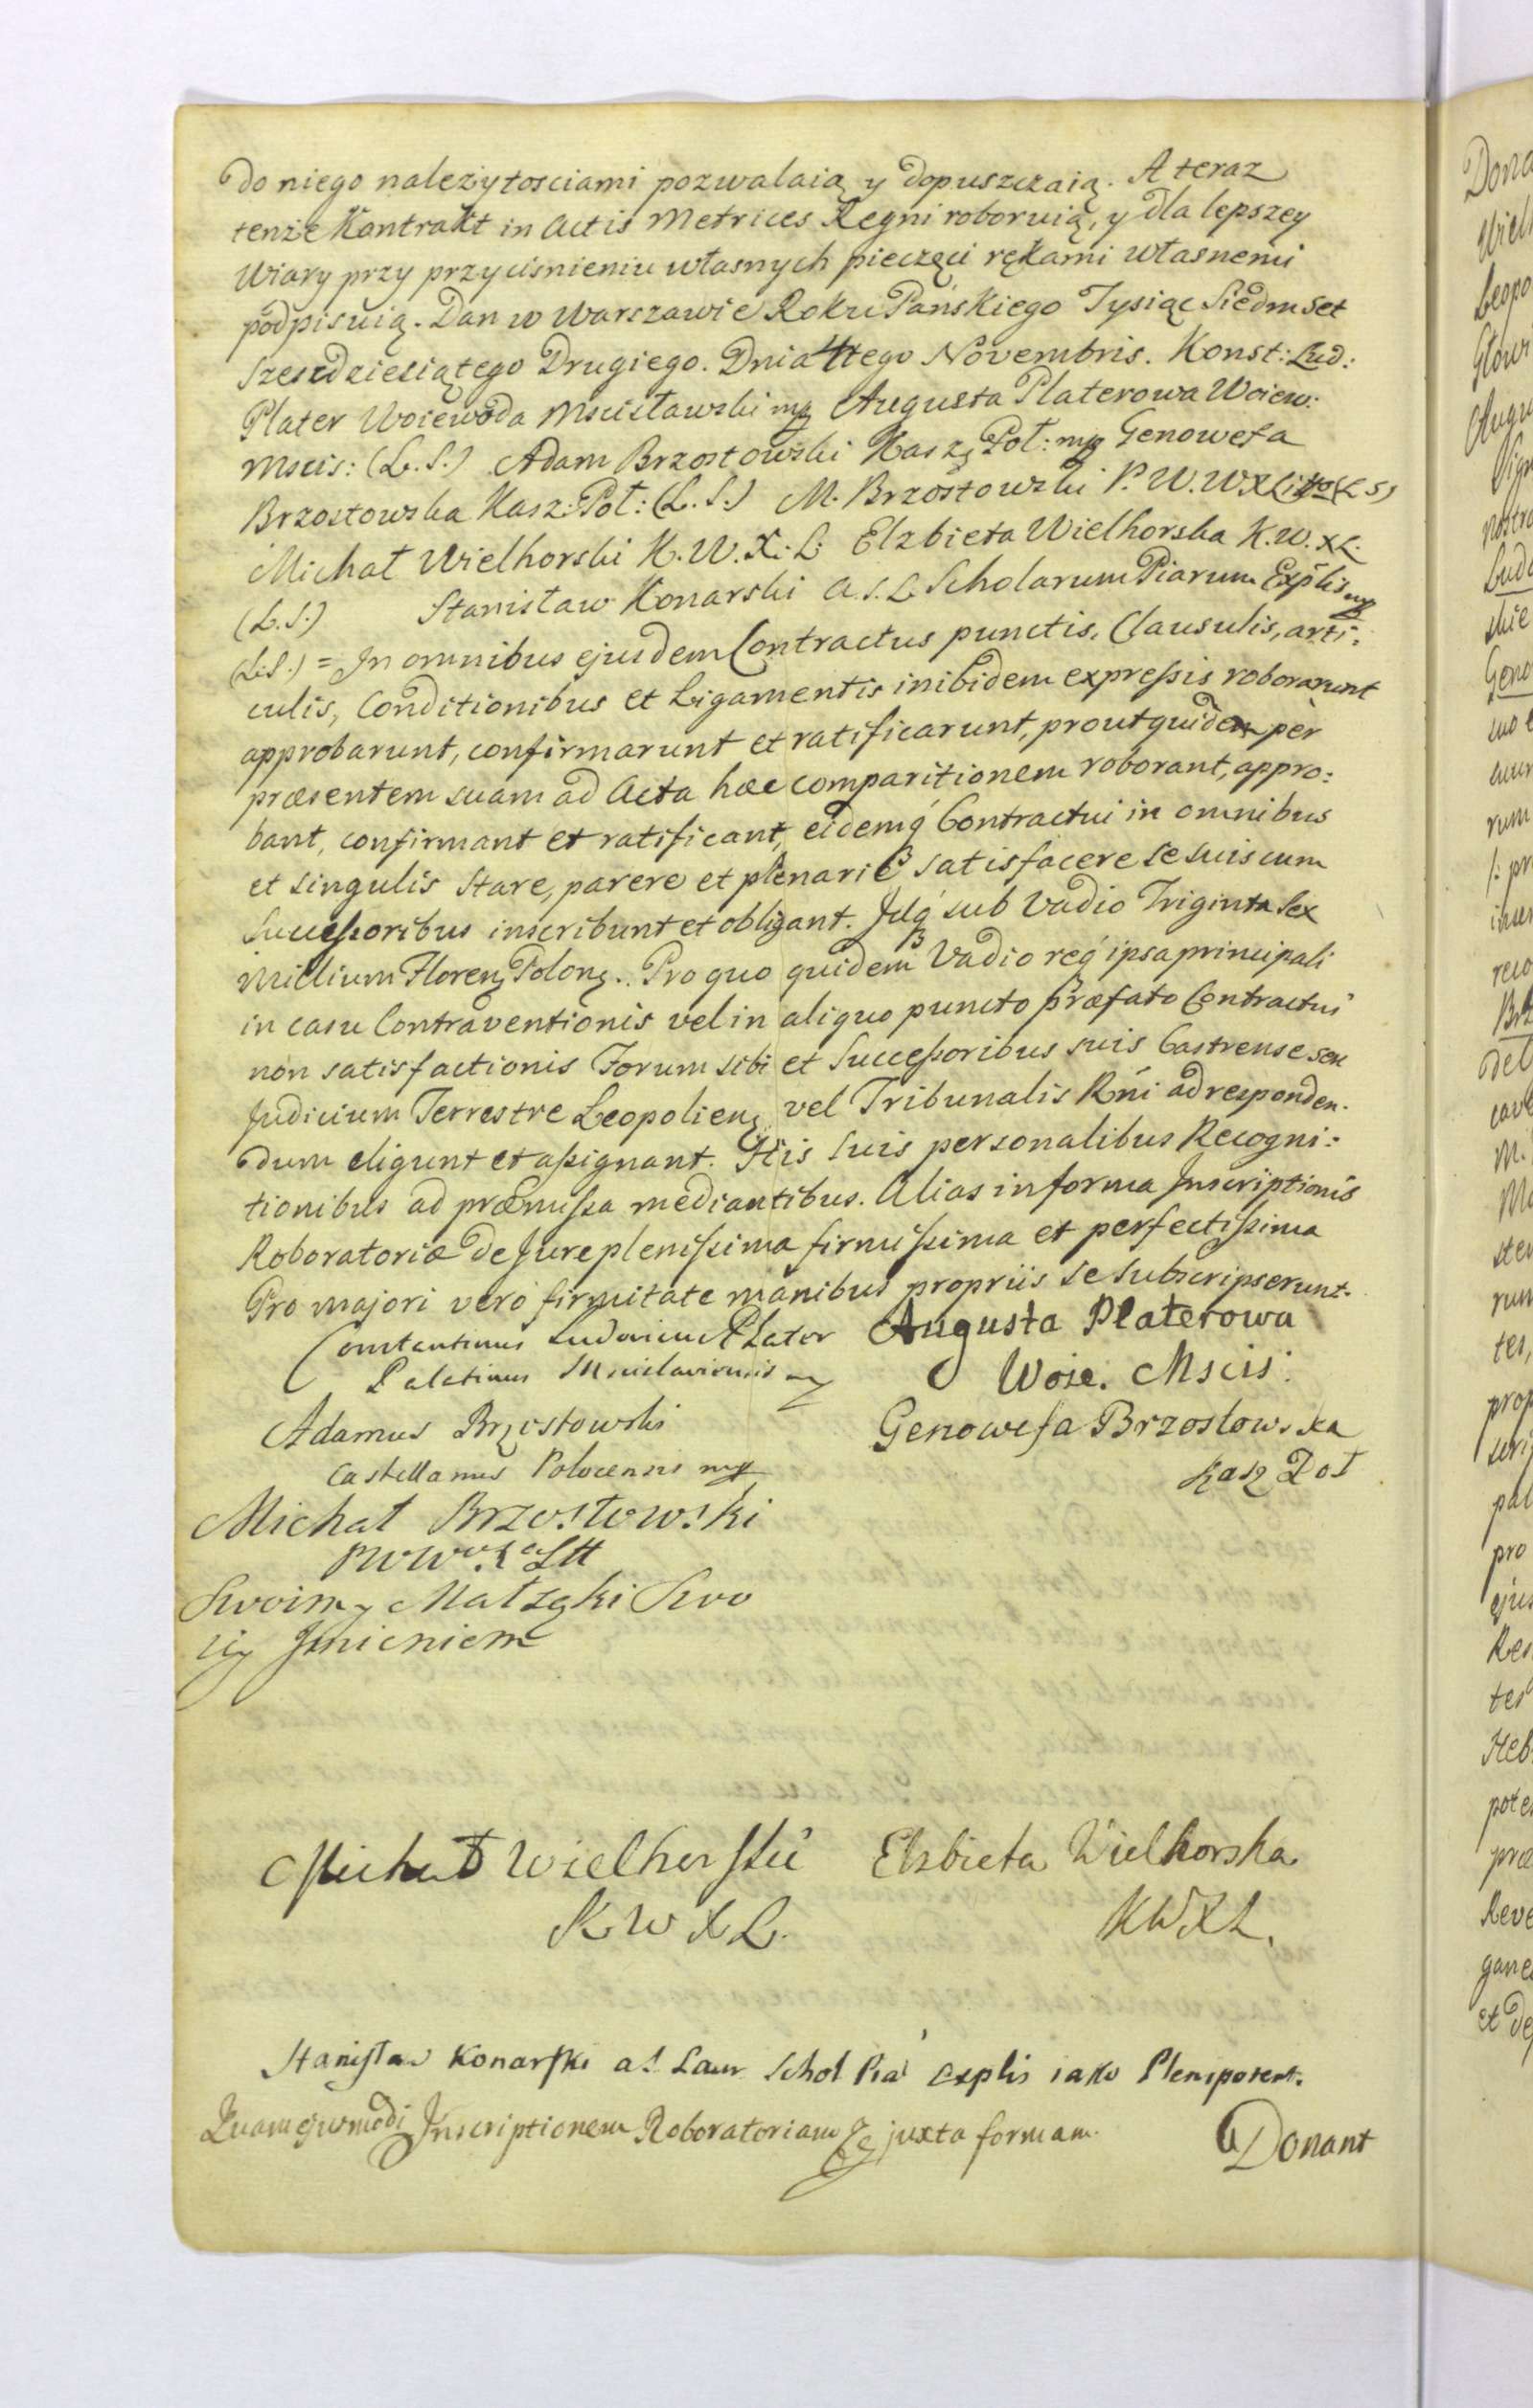 do niego należytosciami pozwalaią y dopuszczaią. A teraz
tenże Kontrakt in Actis Metrices Regni roboruią, y dla lepszey
Wiary przy przycisnieniu własnych pieczęci rękami własnemi
podpisuią. Dan w Warszawie Roku Pańskiego Tysiąc Siedmset
Szeszdziesiątego Drugiego. Dnia Novembris. Konst: Lud:
Plater Woiewoda Mscisławski mp Augusta Platerowa Woiew:
Mscis: (L.S.) Adam Brzostowski Kasz Poł: mp Genowefa
Brzostowska Kasz: Poł: (L.S.) M. Brzostowski P. W. W X Litto (L S)
Michał Wielhorski K. W. X. L: Elzbieta Wielhorska K. W. X L.
(L.S.) Stanisław Konarski A. S. L Scholarum Piarum Explis mp
(L.S.) = In omnibus ejusdem Contractus punctis, Clausulis, arti:
culis, Conditionibus et Ligamentis inibidem expressis roborarunt
approbarunt, confirmarunt et ratificarunt, prout quidem per
præsentem suam ad Acta hæc comparitionem roborant, appro:
bant, confirmant et ratificant, eidemq́ Contractui in omnibus
et singulis Stare, parere et plenarie satisfacere se suis cum
Successoribus inscribunt et obligant. Idq́ sub Vadio Triginta Sex
Millium Floren Polon. Pro quo quidem Vadio req́ ipsa principali
in casu Contraventionis vel in aliquo puncto præfato Contractui
non satisfactionis Forum sibi et Successoribus suis Castrense seu
Judicium Terrestre Leopolien vel Tribunalis Rńi ad responden.
dum eligunt et assignant. His suis personalibus Recogni:
tionibus ad præmissa mediantibus. Alias in forma Inscriptionis
Roboratoriæ de Jure plenissima firmissima et perfectissima
Pro majori vero firmitate manibus propriis se subscripserunt.
Constantinus Ludovicus Plater Augusta Platerowa
Palatinus Mscislaviensis mp Woie. Mscis:
Adamus Brzostowski Genowefa Brzostowska
Castellanus Polocensis mp Kasz Poł
Michał Brzostowski
Swoim y Małząki Swo
iỹ Jmieniem
Michał Wielhorski Elzbieta Wielhorska
K W X L. K W X L.
Stanisław Konarski a S Laur Schol Pia explis iako Plenipotent.
Quam ejusmodi Inscriptionem Roboratoriam juxta formam.
Donant